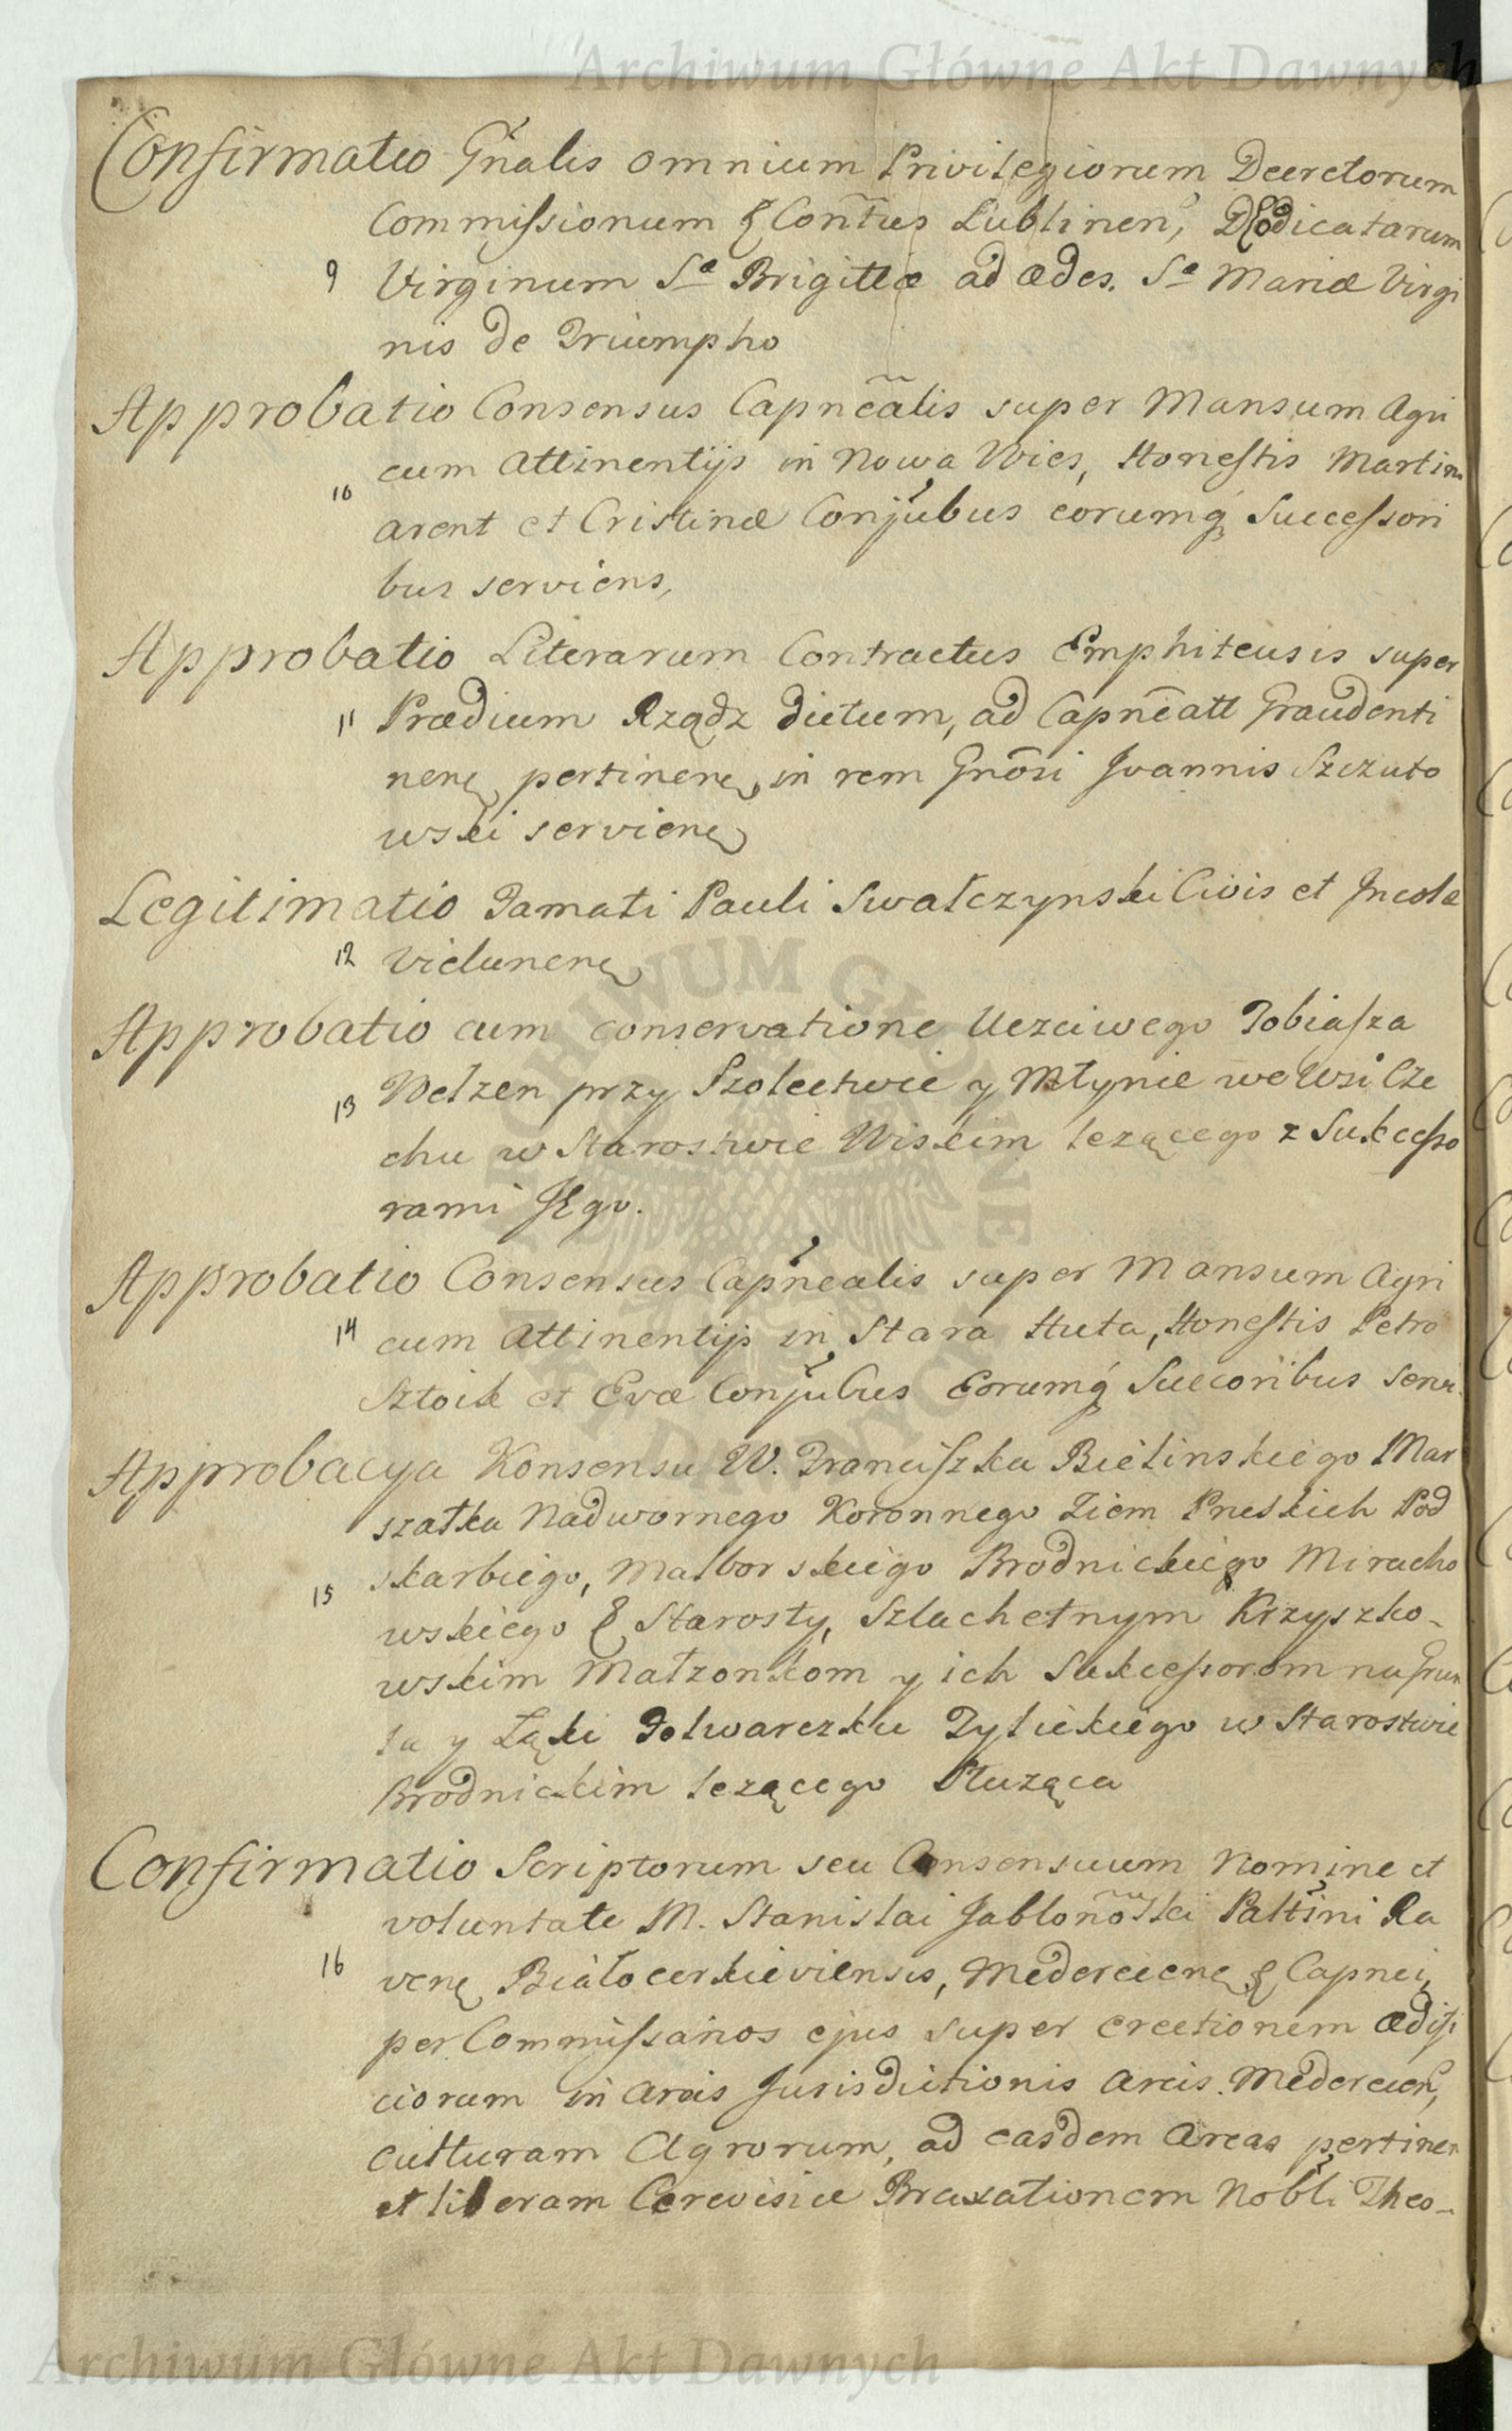 Archiwum Główne Akt Dawnych
Confirmatio Gn̄alis omnium Privilegiorum Decretorum
Commissionum & Conītus Lublinen, Dedicatarum
9 Virginum Sæ Brigittæ ad ædes. Sæ Mariæ Virgi
nis de Triumpho
Approbatio Consensus Capnēalis super Mansum Agri
cum attinentijs in Nowa Wies, Honestis Martino
10 arent et Cristinæ Conjubus eorumq Successori
bus serviens,
Approbatio Literarum Contractus Emphiteusis super
11 Prædium Rządz dictum, ad Capnēatt Graudenti
nenę pertinenę, in rem Gnōsi Joannis Szczuto
wski servienę
Legitimatio Famati Pauli Swałczynski Civis et Incolæ
12 Vielunenę
Approbatio cum conservatione Uczciwego Tobiasza
13 Welzen przy Szolectwie y Młynie we Wsi Cze
chu w Starostwie Wiskim lezącego z Sukcesso
rami Jego.
Approbatio Consensus Capnealis super Mansum Agri
14 cum attinentijs in Stara Huta, Honestis Petro
Sztoik et Evæ Conjubus Eorumq Succoribus servi.
Approbacya Konsensu W. Franciszka Bielinskiego Mar
szałka Nadwornego Koronnego Ziem Pruskich Pod
15 skarbiego, Malborskiego Brodnickiego Miracho
wskiego & Starosty, Szlachetnym Krzyszko-
wskim Małzonkom y ich Sukcessorom na Grun
ta y Łąki Folwarczku Zylickiego w Starostwie
Brodnickim lezącego Służąca
Confirmatio Scriptorum seu Consensuum Nomine et
voluntate M. Stanislai Jablonōski Pałtini Ra
16 venę Białocerkieviensis, Mederecienę & Capnei,
per Commissarios ejus super erectionem ædifi
ciorum in areis Jurisdictionis Arcis. Mederecien,
culturam Agrorum, ad easdem Areas pertinen
et liberam Cerevisiæ Braxationem Nobli Theo-
Archiwum Główne Akt Dawnych